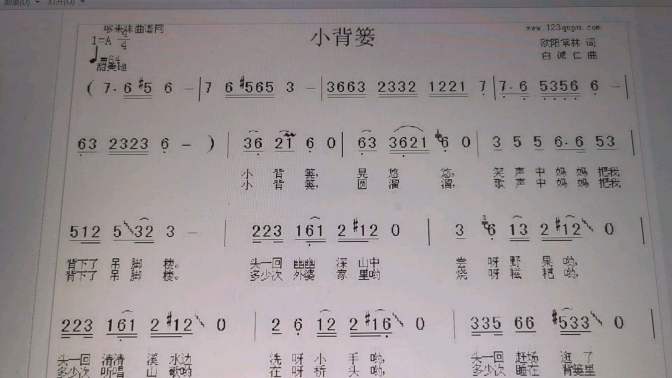 小背篓
www.123qupu.com
欧阳常林 词
白诚仁 曲
1=A 4/4
( 7· 6 #5 6 - | 7 6 #565 3 - | 3663 2332 1221 7 | 7· 6 5356 6 - |
63 2323 6 - ) | 36 21 6 0 | 63 3621 6 0 | 3 5 5 6· 6 53 |
小 背 篓, 晃 悠 悠, 笑 声 中 妈 妈 把我
小 背 篓, 圆 溜 溜, 歌 声 中 妈 妈 把我
512 5 32 3 - | 223 161 2 #12 0 | 3 6 13 2 #12 0 |
背下了 吊 脚 楼。 头一回 幽幽 深 山中 尝 呀 野 果 哟,
背下了 吊 脚 楼。 多少次 外婆 家 里哟 烧 呀 糍 粑 哟,
223 161 2 #12 0 | 2 6 12 2 #16 0 | 335 66 #533 0 |
头一回 清清 溪 水边 洗 呀 小 手 哟, 头一回 赶场 逛 了
多少次 听唱 山 歌哟 在 呀 桥 头 哟, 多少次 睡在 背篓里